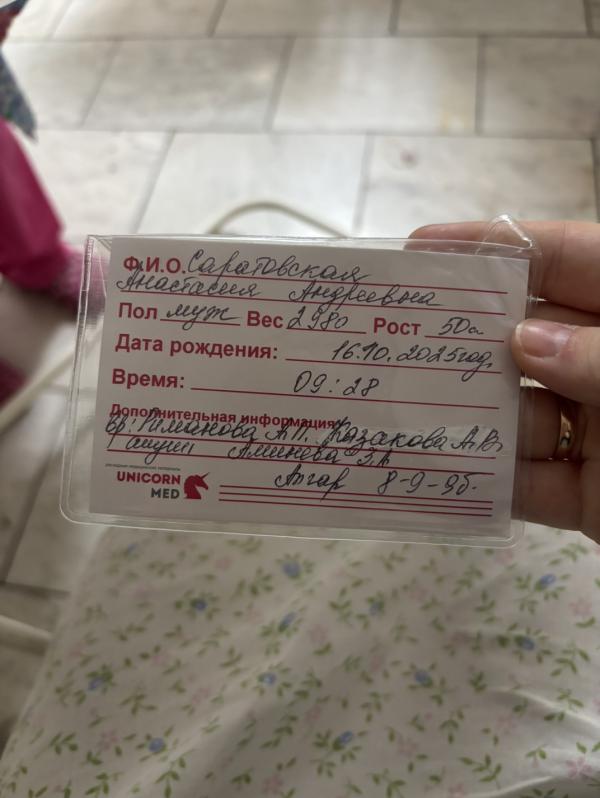 Ф.И.О. Саратовская
Анастасия Андреевна
Пол муж Вес 2980 Рост 50см
Дата рождения: 16.10.2025год
Время: 09:28
Дополнительная информация:
вр: А.П. Казакова А.В.
Аминева З.А
Апгар 8-9-9б.
расходные медицинские материалы
UNICORN
MED